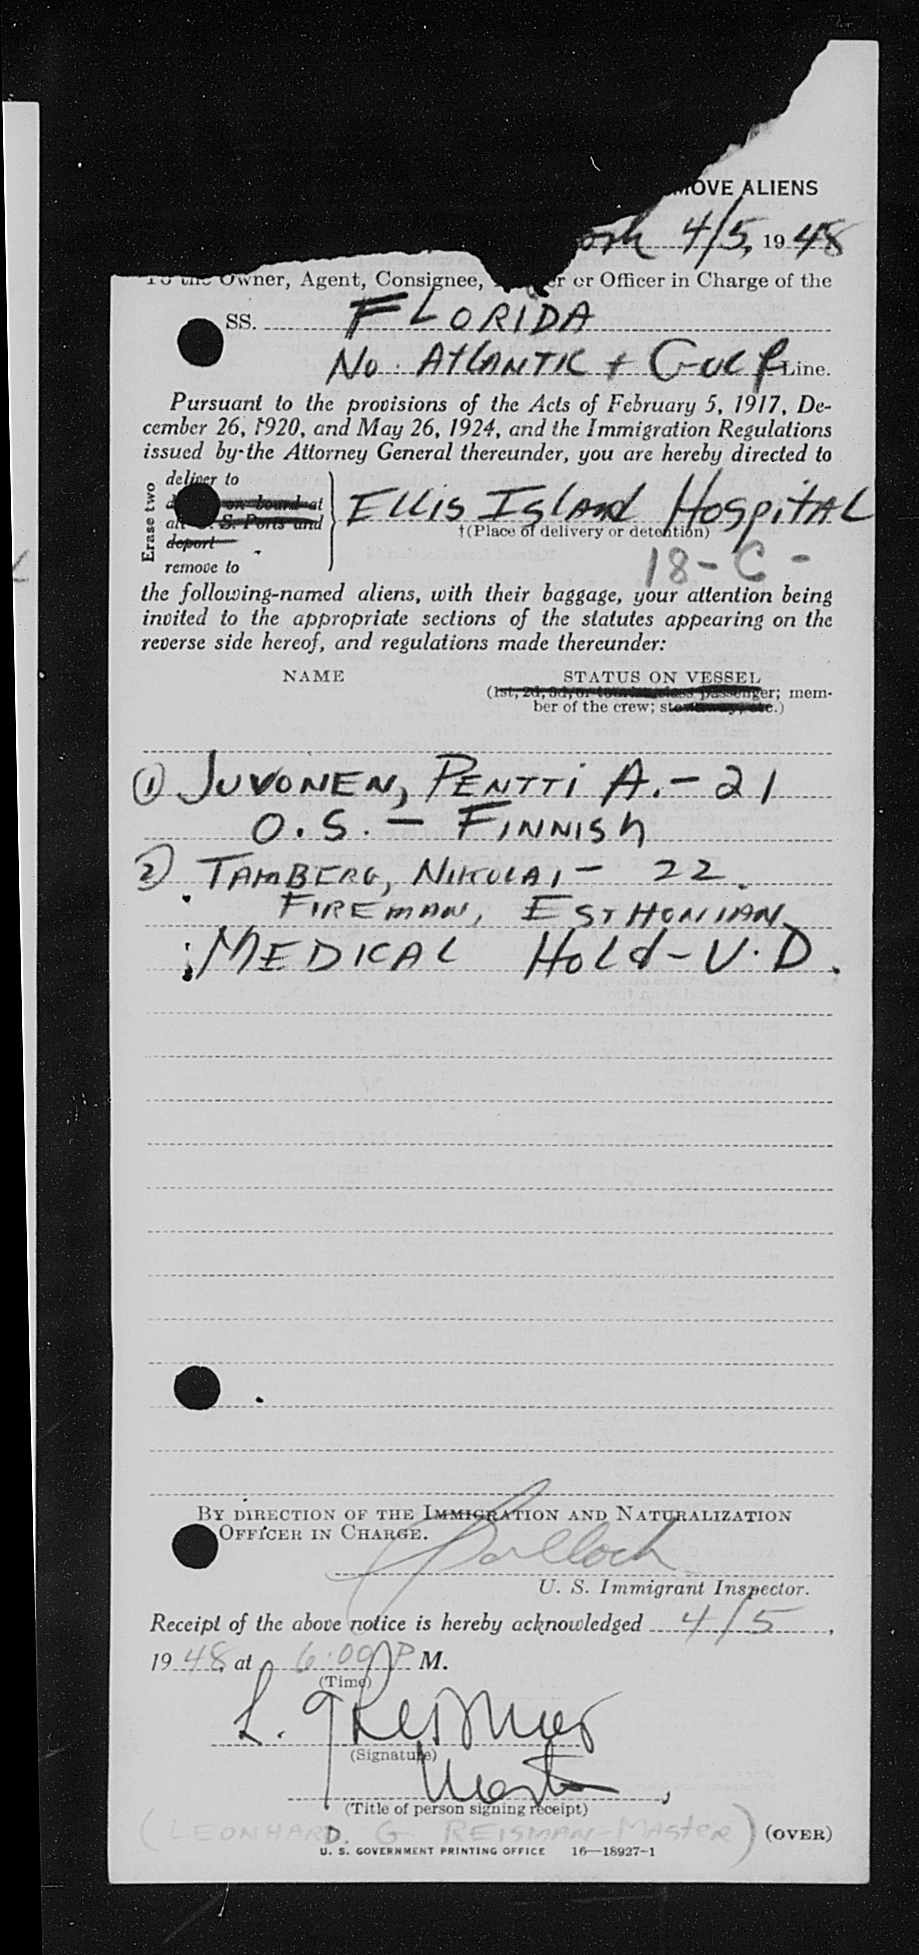 MOVE ALIENS
ork 4/5, 1948
To the Owner, Agent, Consignee, er or Officer in Charge of the
SS. FLORIDA
No. Atlantic + Gulf Line.
Pursuant to the provisions of the Acts of February 5, 1917, De-
cember 26, 1920, and May 26, 1924, and the Immigration Regulations
issued by the Attorney General thereunder, you are hereby directed to
Erase two
deliver to
on board at
S. Ports and
deport
remove to
Ellis Island Hospital
†(Place of delivery or detention)
18-C-
the following-named aliens, with their baggage, your attention being
invited to the appropriate sections of the statutes appearing on the
reverse side hereof, and regulations made thereunder:
NAME STATUS ON VESSEL
(1st, 2d, 3d, or tourist class passenger; mem-
ber of the crew; stowaway, etc.)
① JUVONEN, PENTTI A. - 21
O.S. - FINNISH
② TAMBERG, NIKOLAI - 22.
FIREMAN, ESTHONIAN
: MEDICAL HOLD - V.D.
BY DIRECTION OF THE IMMIGRATION AND NATURALIZATION
OFFICER IN CHARGE.
U. S. Immigrant Inspector.
Receipt of the above notice is hereby acknowledged 4/5,
1948, at 6:00 P M.
(Time)
L. G Reisman
(Signature)
Master,
(Title of person signing receipt)
(LEONHARD. G REISMAN - MASTER) (OVER)
U. S. GOVERNMENT PRINTING OFFICE 16—18927-1